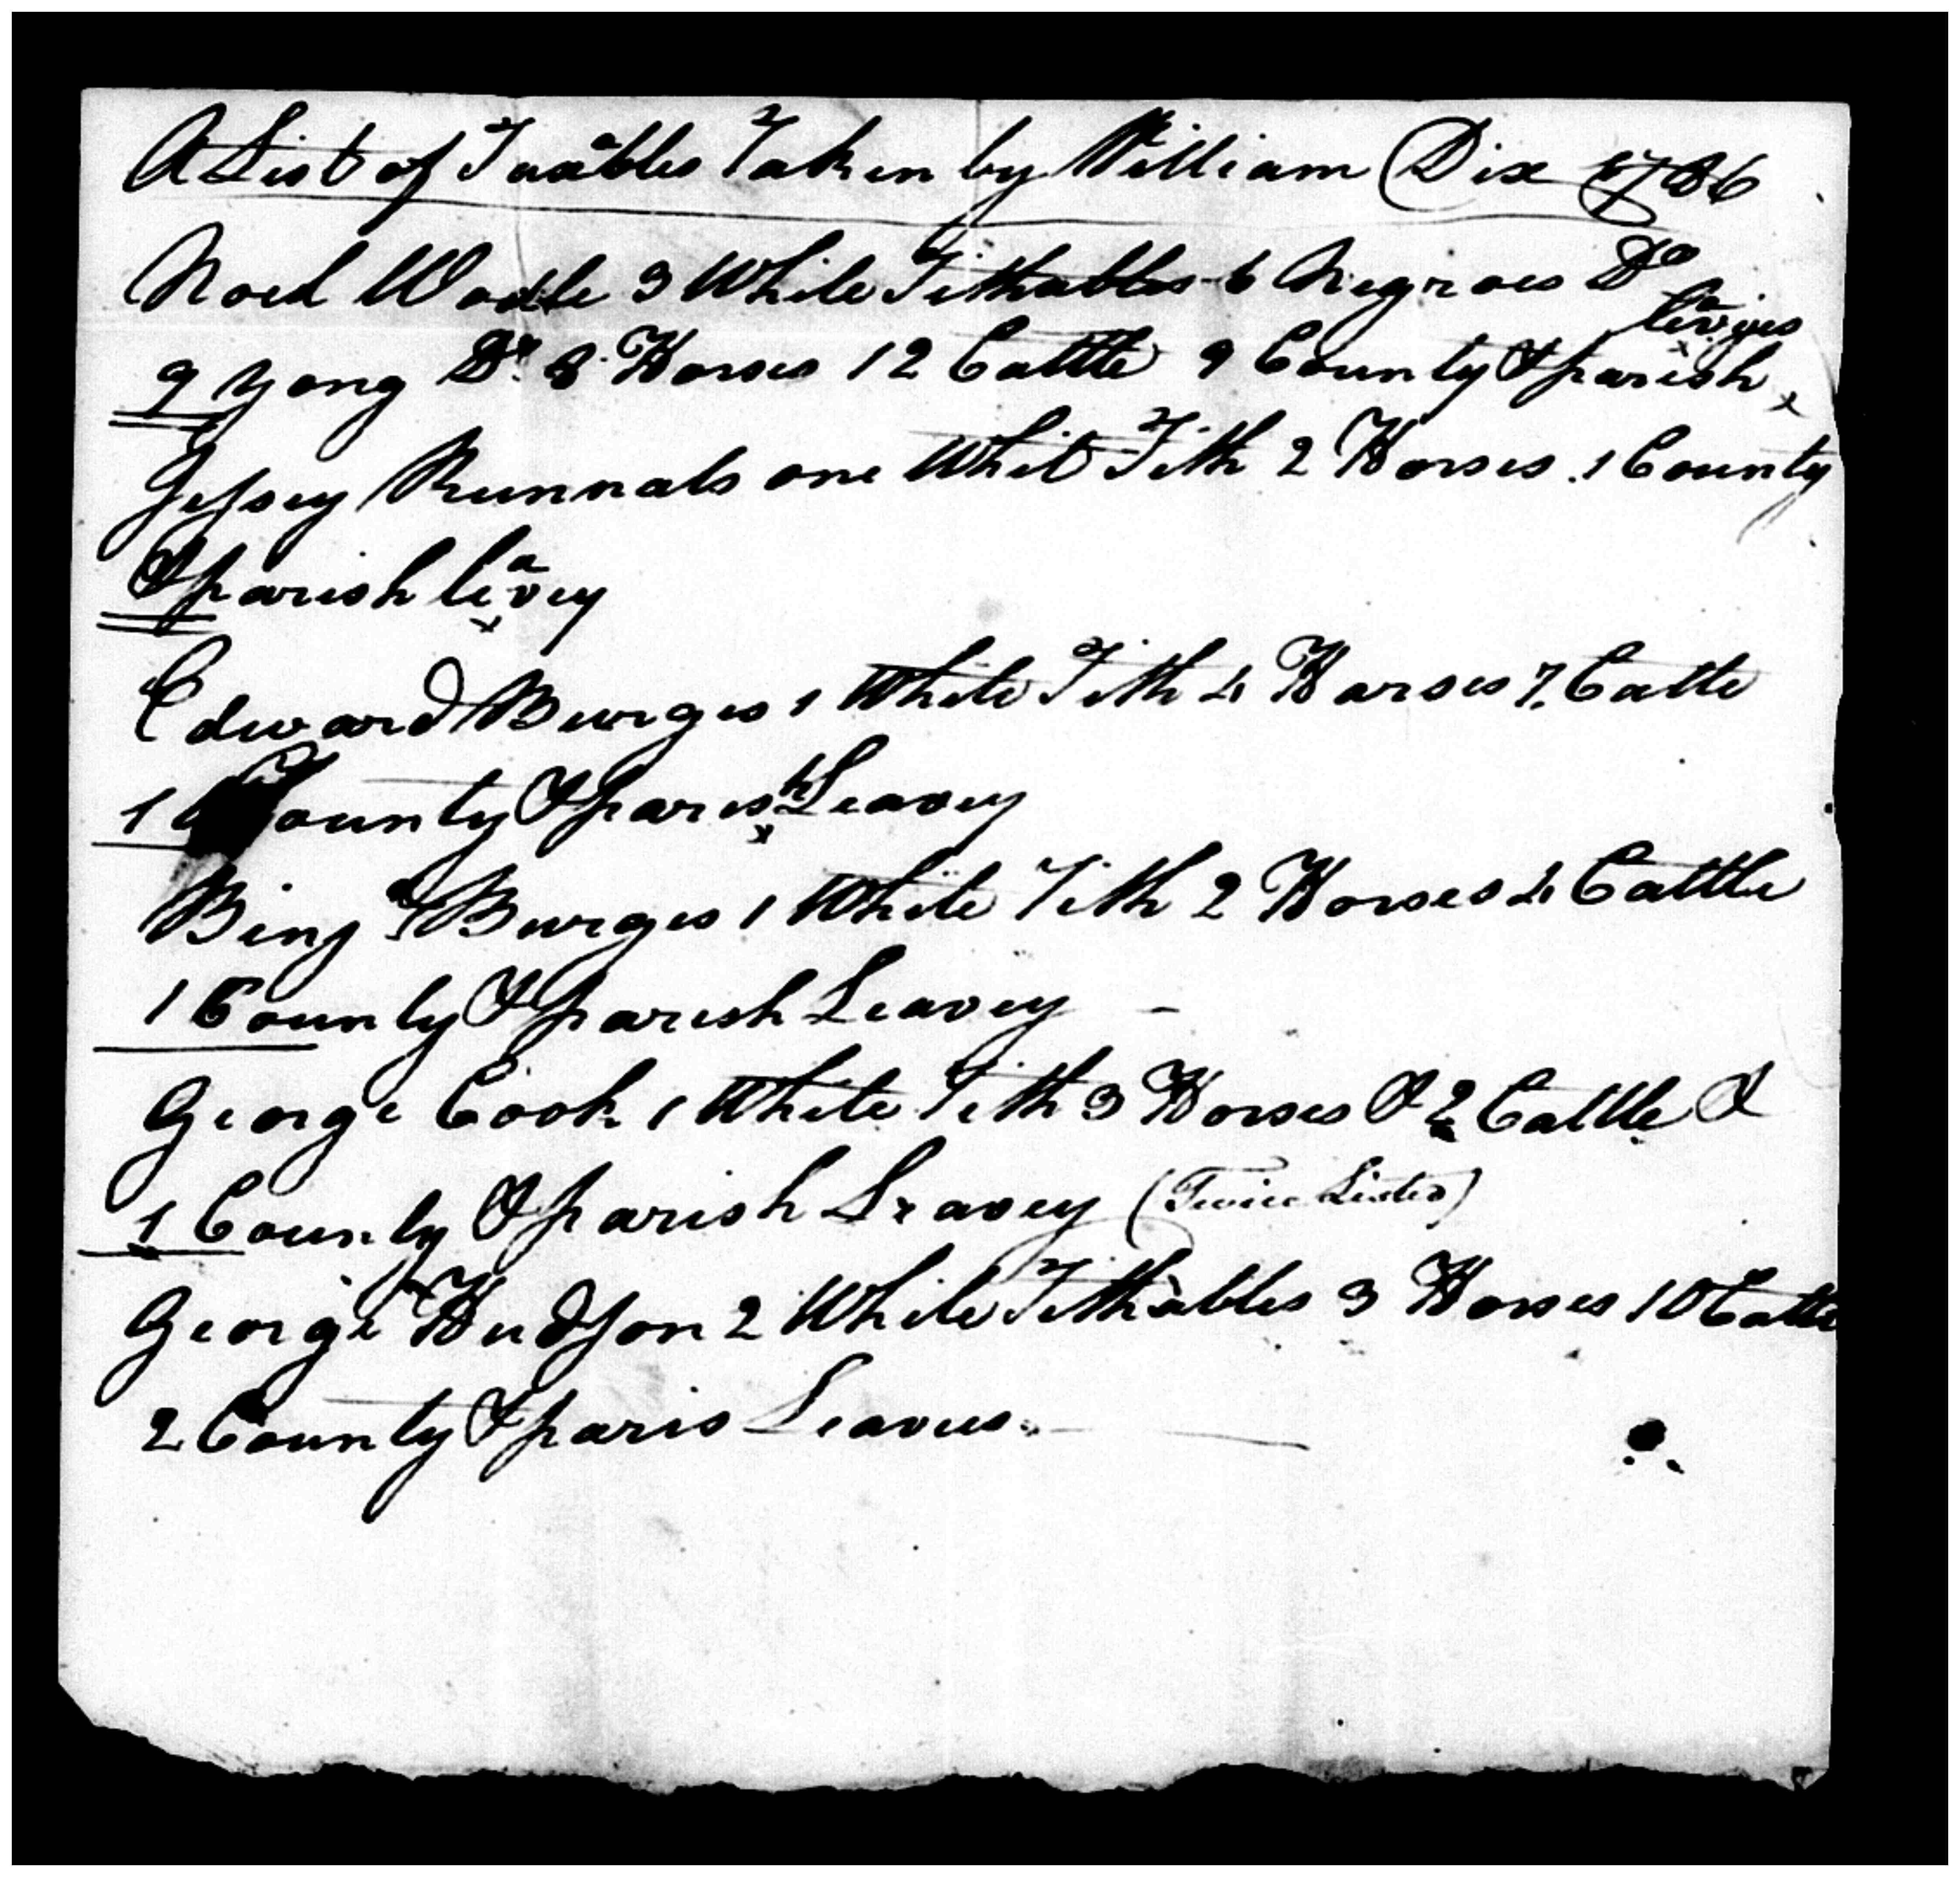 A List of Taxables Taken by William Dix 1786
Noel Wadle 3 White Tithables 6 Negroes Do
9 yong Do 8 Horses 12 Cattle 9 County & parish leavies
Jessey Runnals one Whit Tith 2 Horses 1 County
& parish leavey
Edward Burges 1 White Tith 4 Harses 7 Catle
1 County & parish Leavey
Binj Burges 1 White Tith 2 Horses 4 Cattle
1 County & parish Leavey
George Cook 1 White Tith 3 Horses & 2 Cattle &
1 County & parish Leavey (Twice Listed)
George Hudson 2 White Tithables 3 Horses 10 Cattle
2 County & paris Leavees